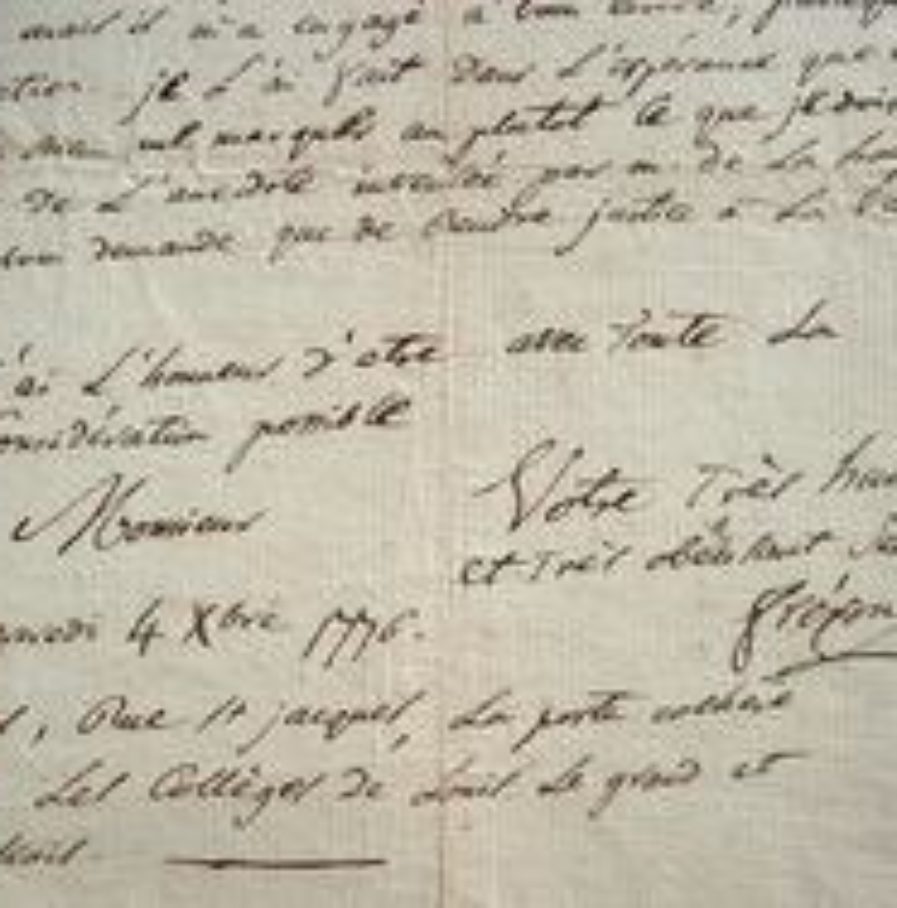 mais il m'a engagé à
ction je L'ai fait dans L'espérance que
me marquer au plutot ce que je dois
de L'anecdote inventée par m. de La har
demande que de rendre justice à La
'ai L'honneur d'etre avec Toute La
Considération possible
Monsieur
Votre Très hum
et Très obéissant Se
medi 4 Xbre 1776.
Fréron
, Rue St jacques, La porte cochere
Les Collèges de Louis Le grand et